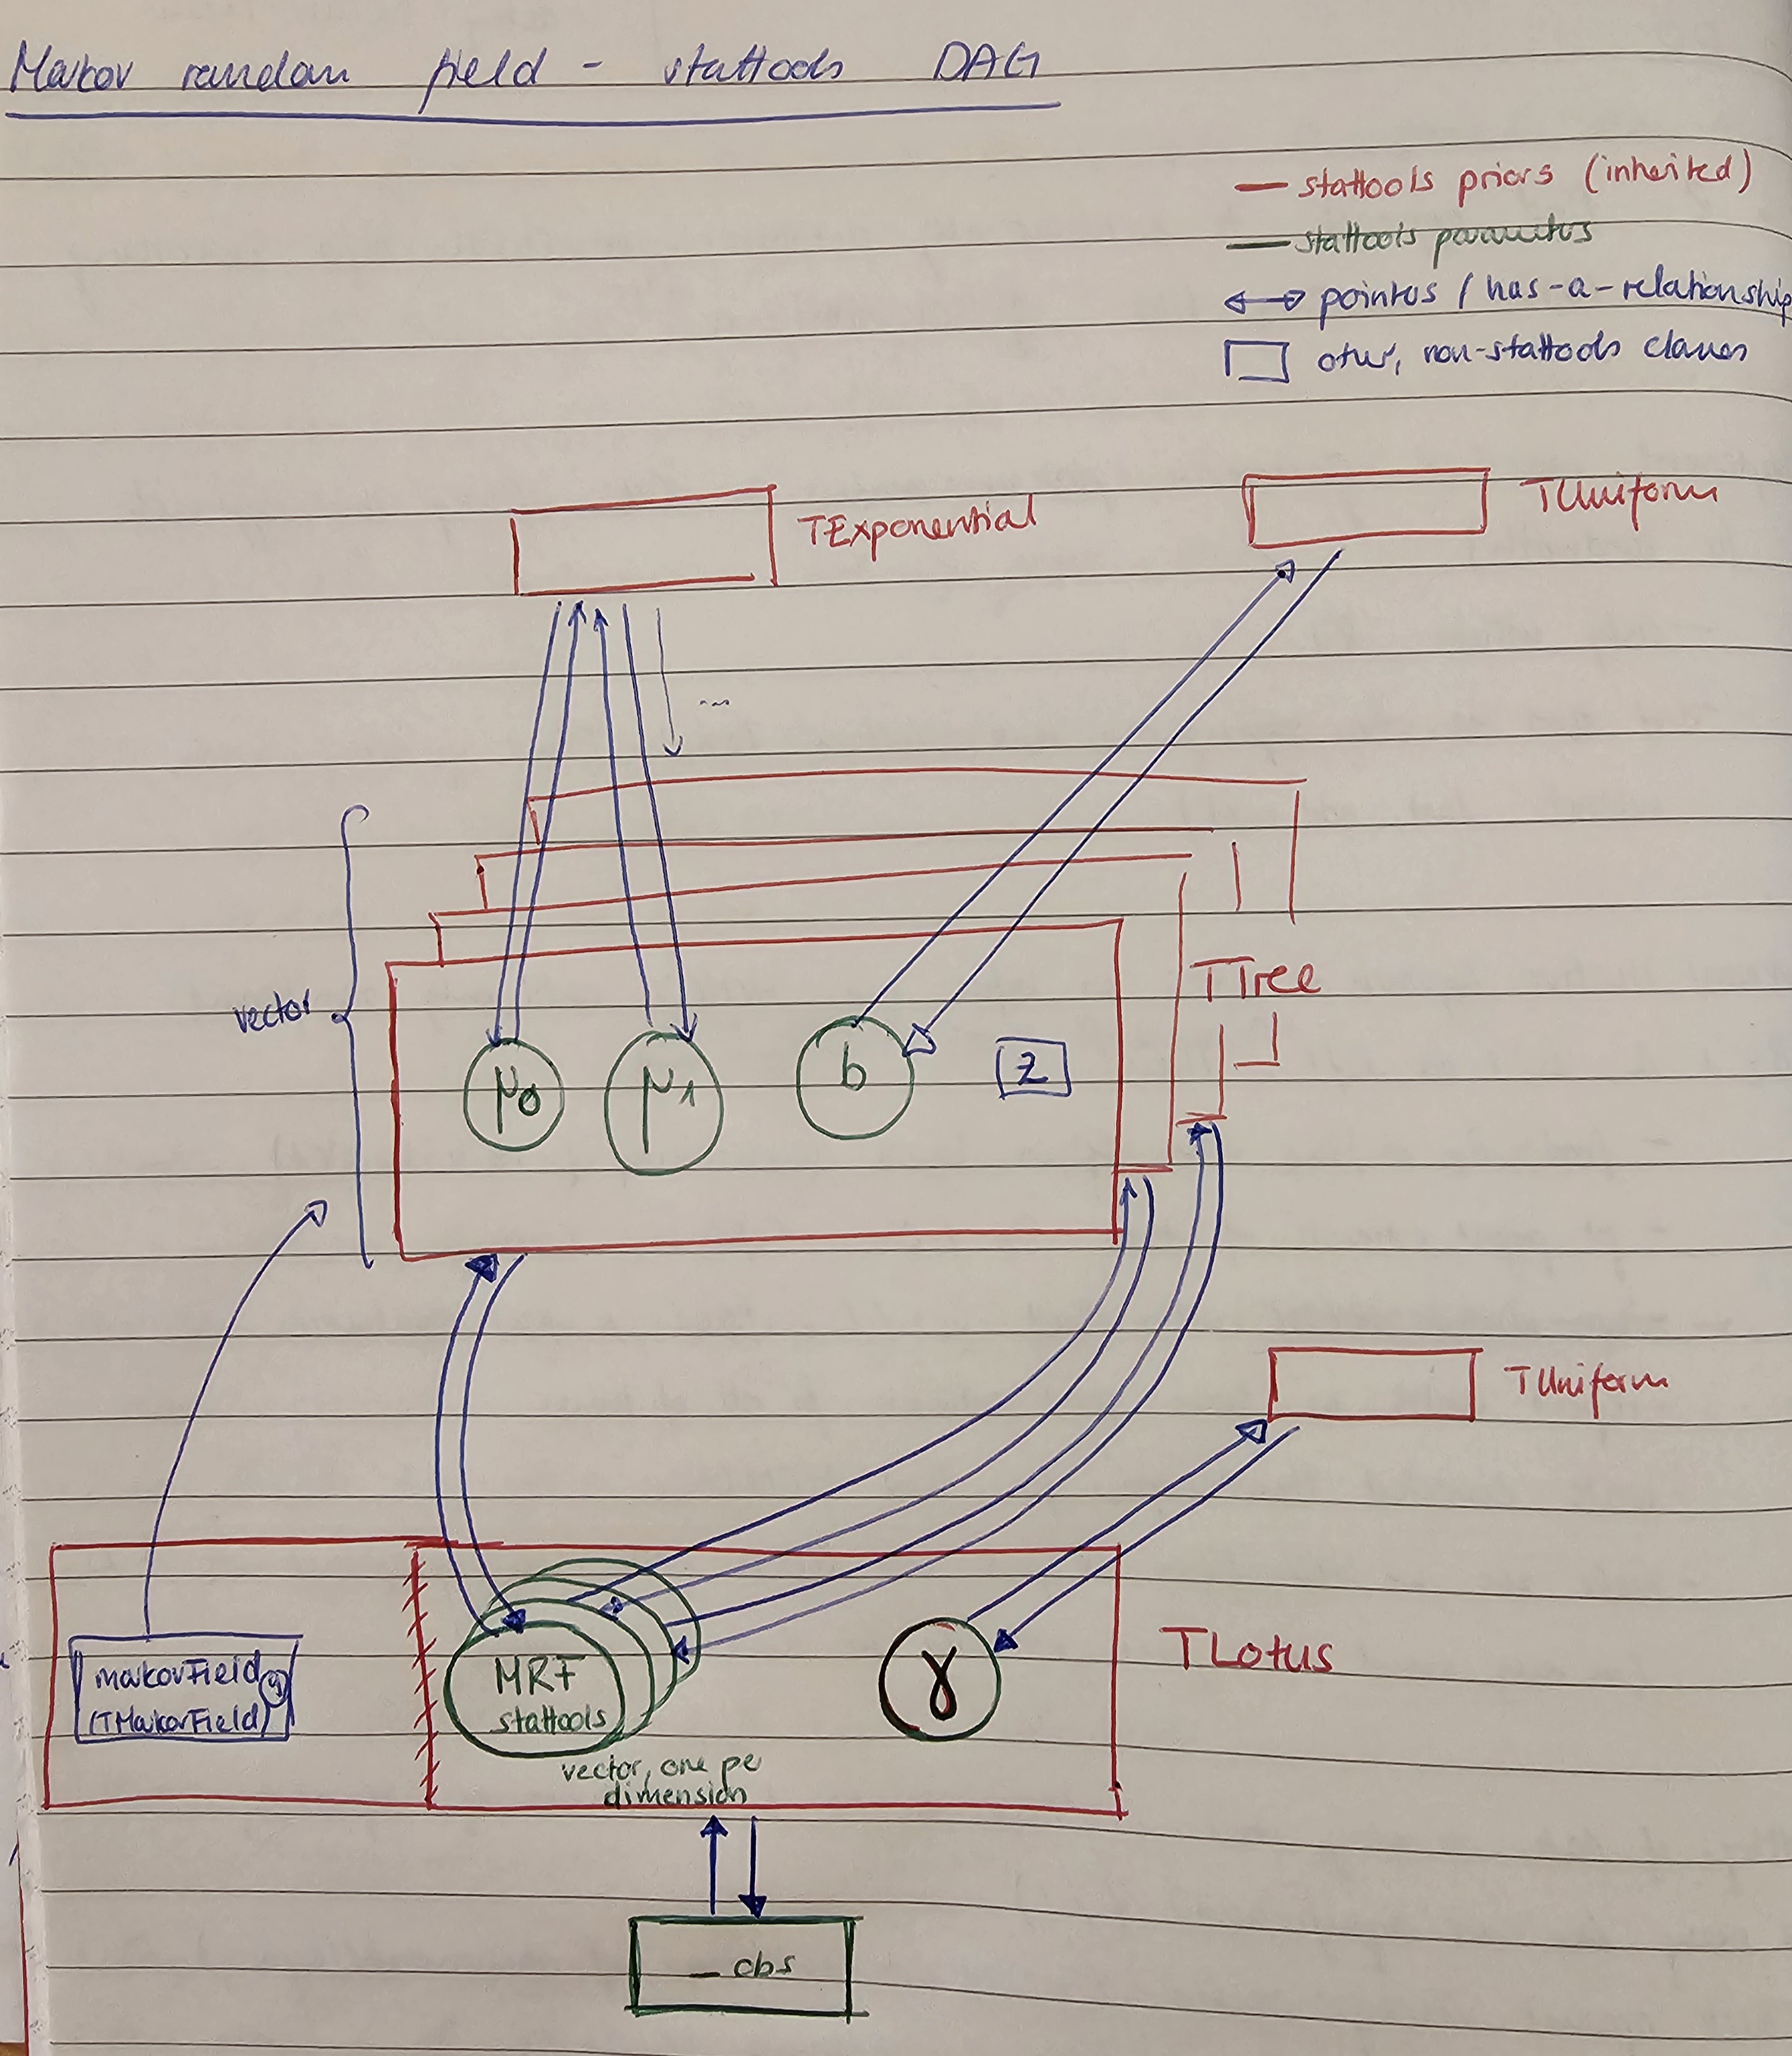 Markov random field - stattools DAG
stattools priors (inherited)
stattools parameters
pointers / has-a-relationship
other, non-stattools classes
TExponential
TUniform
...
vector
TTree
μ0
μ1
b
Z
TUniform
markovField
(TMarkovField)
y
MRF
stattools
vector, one per
dimension
γ
TLotus
_obs